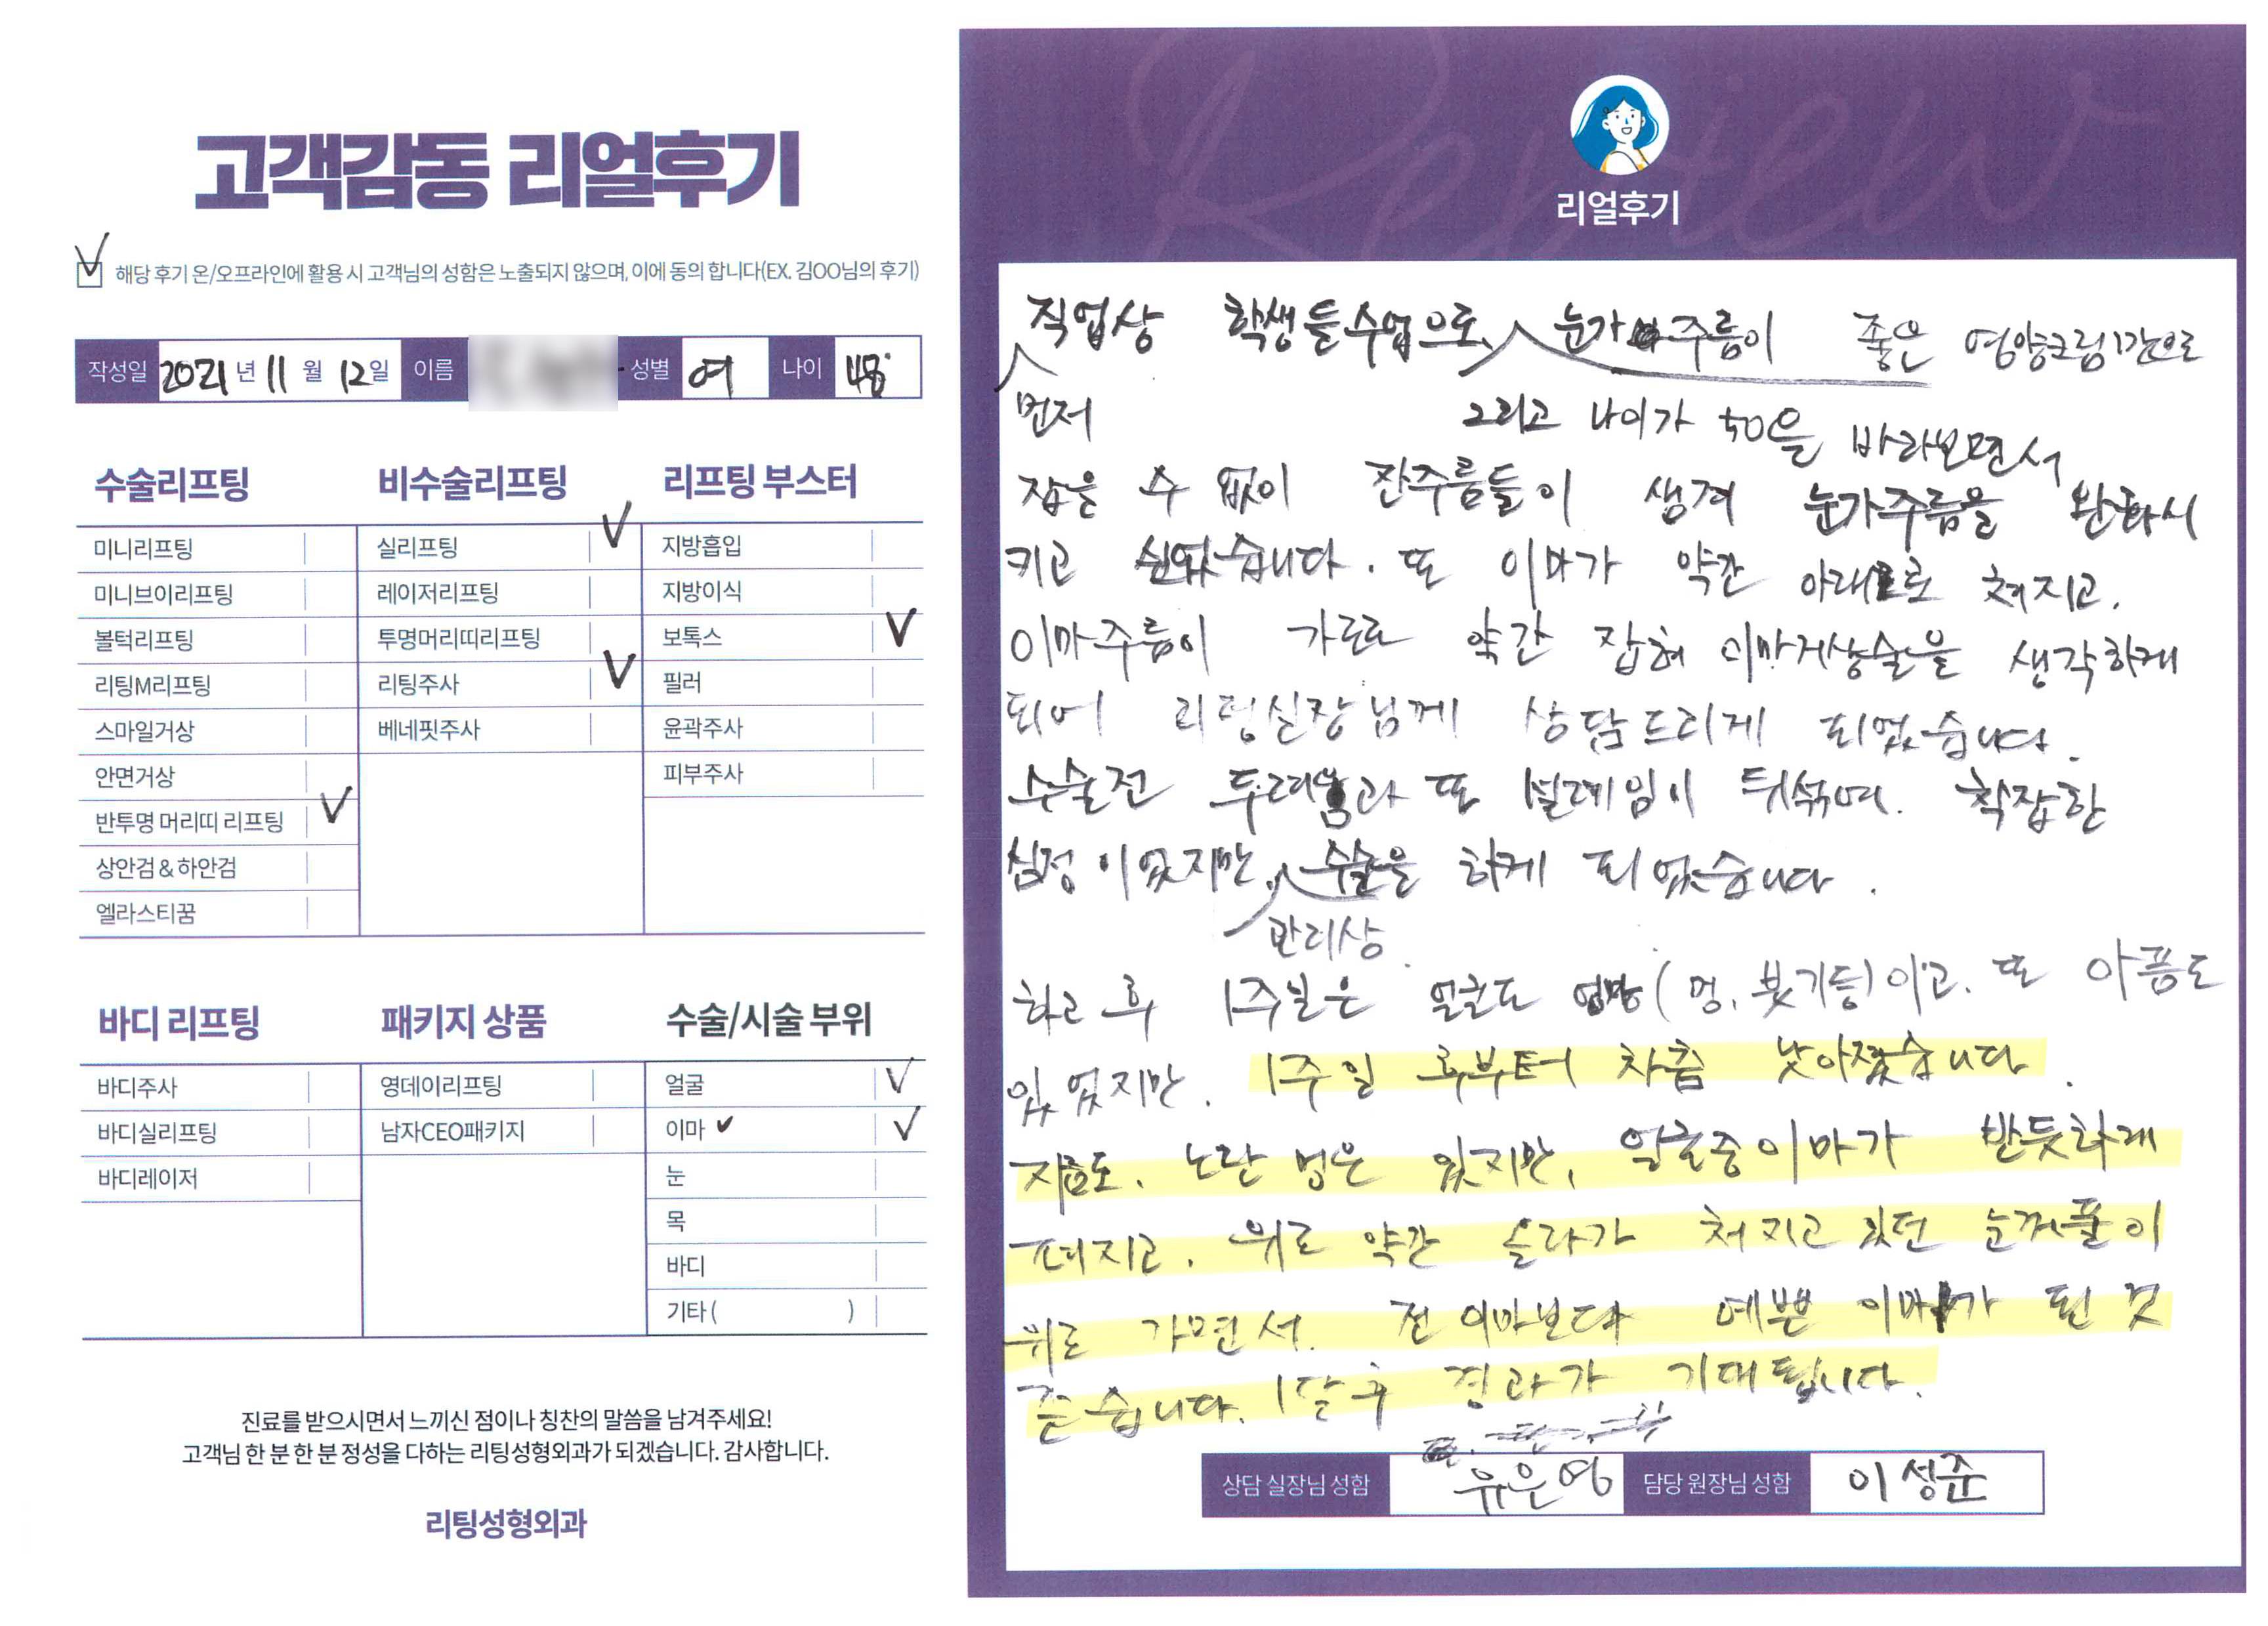 고객감동 리얼후기
해당 후기 온/오프라인에 활용 시 고객님의 성함은 노출되지 않으며, 이에 동의 합니다(EX. 김OO님의 후기)
작성일 2021 년 11 월 12 일 이름 성별 여 나이 48
수술리프팅
미니리프팅
미니브이리프팅
볼턱리프팅
리팅M리프팅
스마일거상
안면거상
반투명 머리띠 리프팅 V
상안검 & 하안검
엘라스티꿈
비수술리프팅
실리프팅 V
레이저리프팅
투명머리띠리프팅
리팅주사 V
베네핏주사
리프팅 부스터
지방흡입
지방이식
보톡스 V
필러
윤곽주사
피부주사
바디 리프팅
바디주사
바디실리프팅
바디레이저
패키지 상품
영데이리프팅
남자CEO패키지
수술/시술 부위
얼굴 V
이마 V V
눈
목
바디
기타 ( )
진료를 받으시면서 느끼신 점이나 칭찬의 말씀을 남겨주세요!
고객님 한 분 한 분 정성을 다하는 리팅성형외과가 되겠습니다. 감사합니다.
리팅성형외과
Review
리얼후기
직업상 학생들수업으로 눈가 주름이 좋은 영양크림만으로
먼저 그리고 나이가 50을 바라보면서
잡을 수 없이 잔주름들이 생겨 눈가주름을 완화시
키고 싶었습니다. 또 이마가 약간 아래로 쳐지고.
이마주름이 가로로 약간 잡혀 이마거상술을 생각하게
되어 리팅실장님께 상담드리게 되었습니다.
수술전 두려움과 또 설레임이 뒤섞여. 착잡한
심정이었지만, 수술을 하게 되었습니다.
관리상
하고 후 1주일은 얼굴도 엉망(멍, 붓기등)이고. 또 아픔도
있었지만. 1주일 후부터 차츰 낫아졌습니다.
지금도. 노란 멍은 있지만, 얼굴중 이마가 반듯하게
펴지고. 위로 약간 올라가 쳐지고 있던 눈꺼풀이
위로 가면서. 전 이마보다 예쁜 이마가 된 것
같습니다. 1달 후 결과가 기대됩니다.
상담 실장님 성함 유은영 담당 원장님 성함 이성준